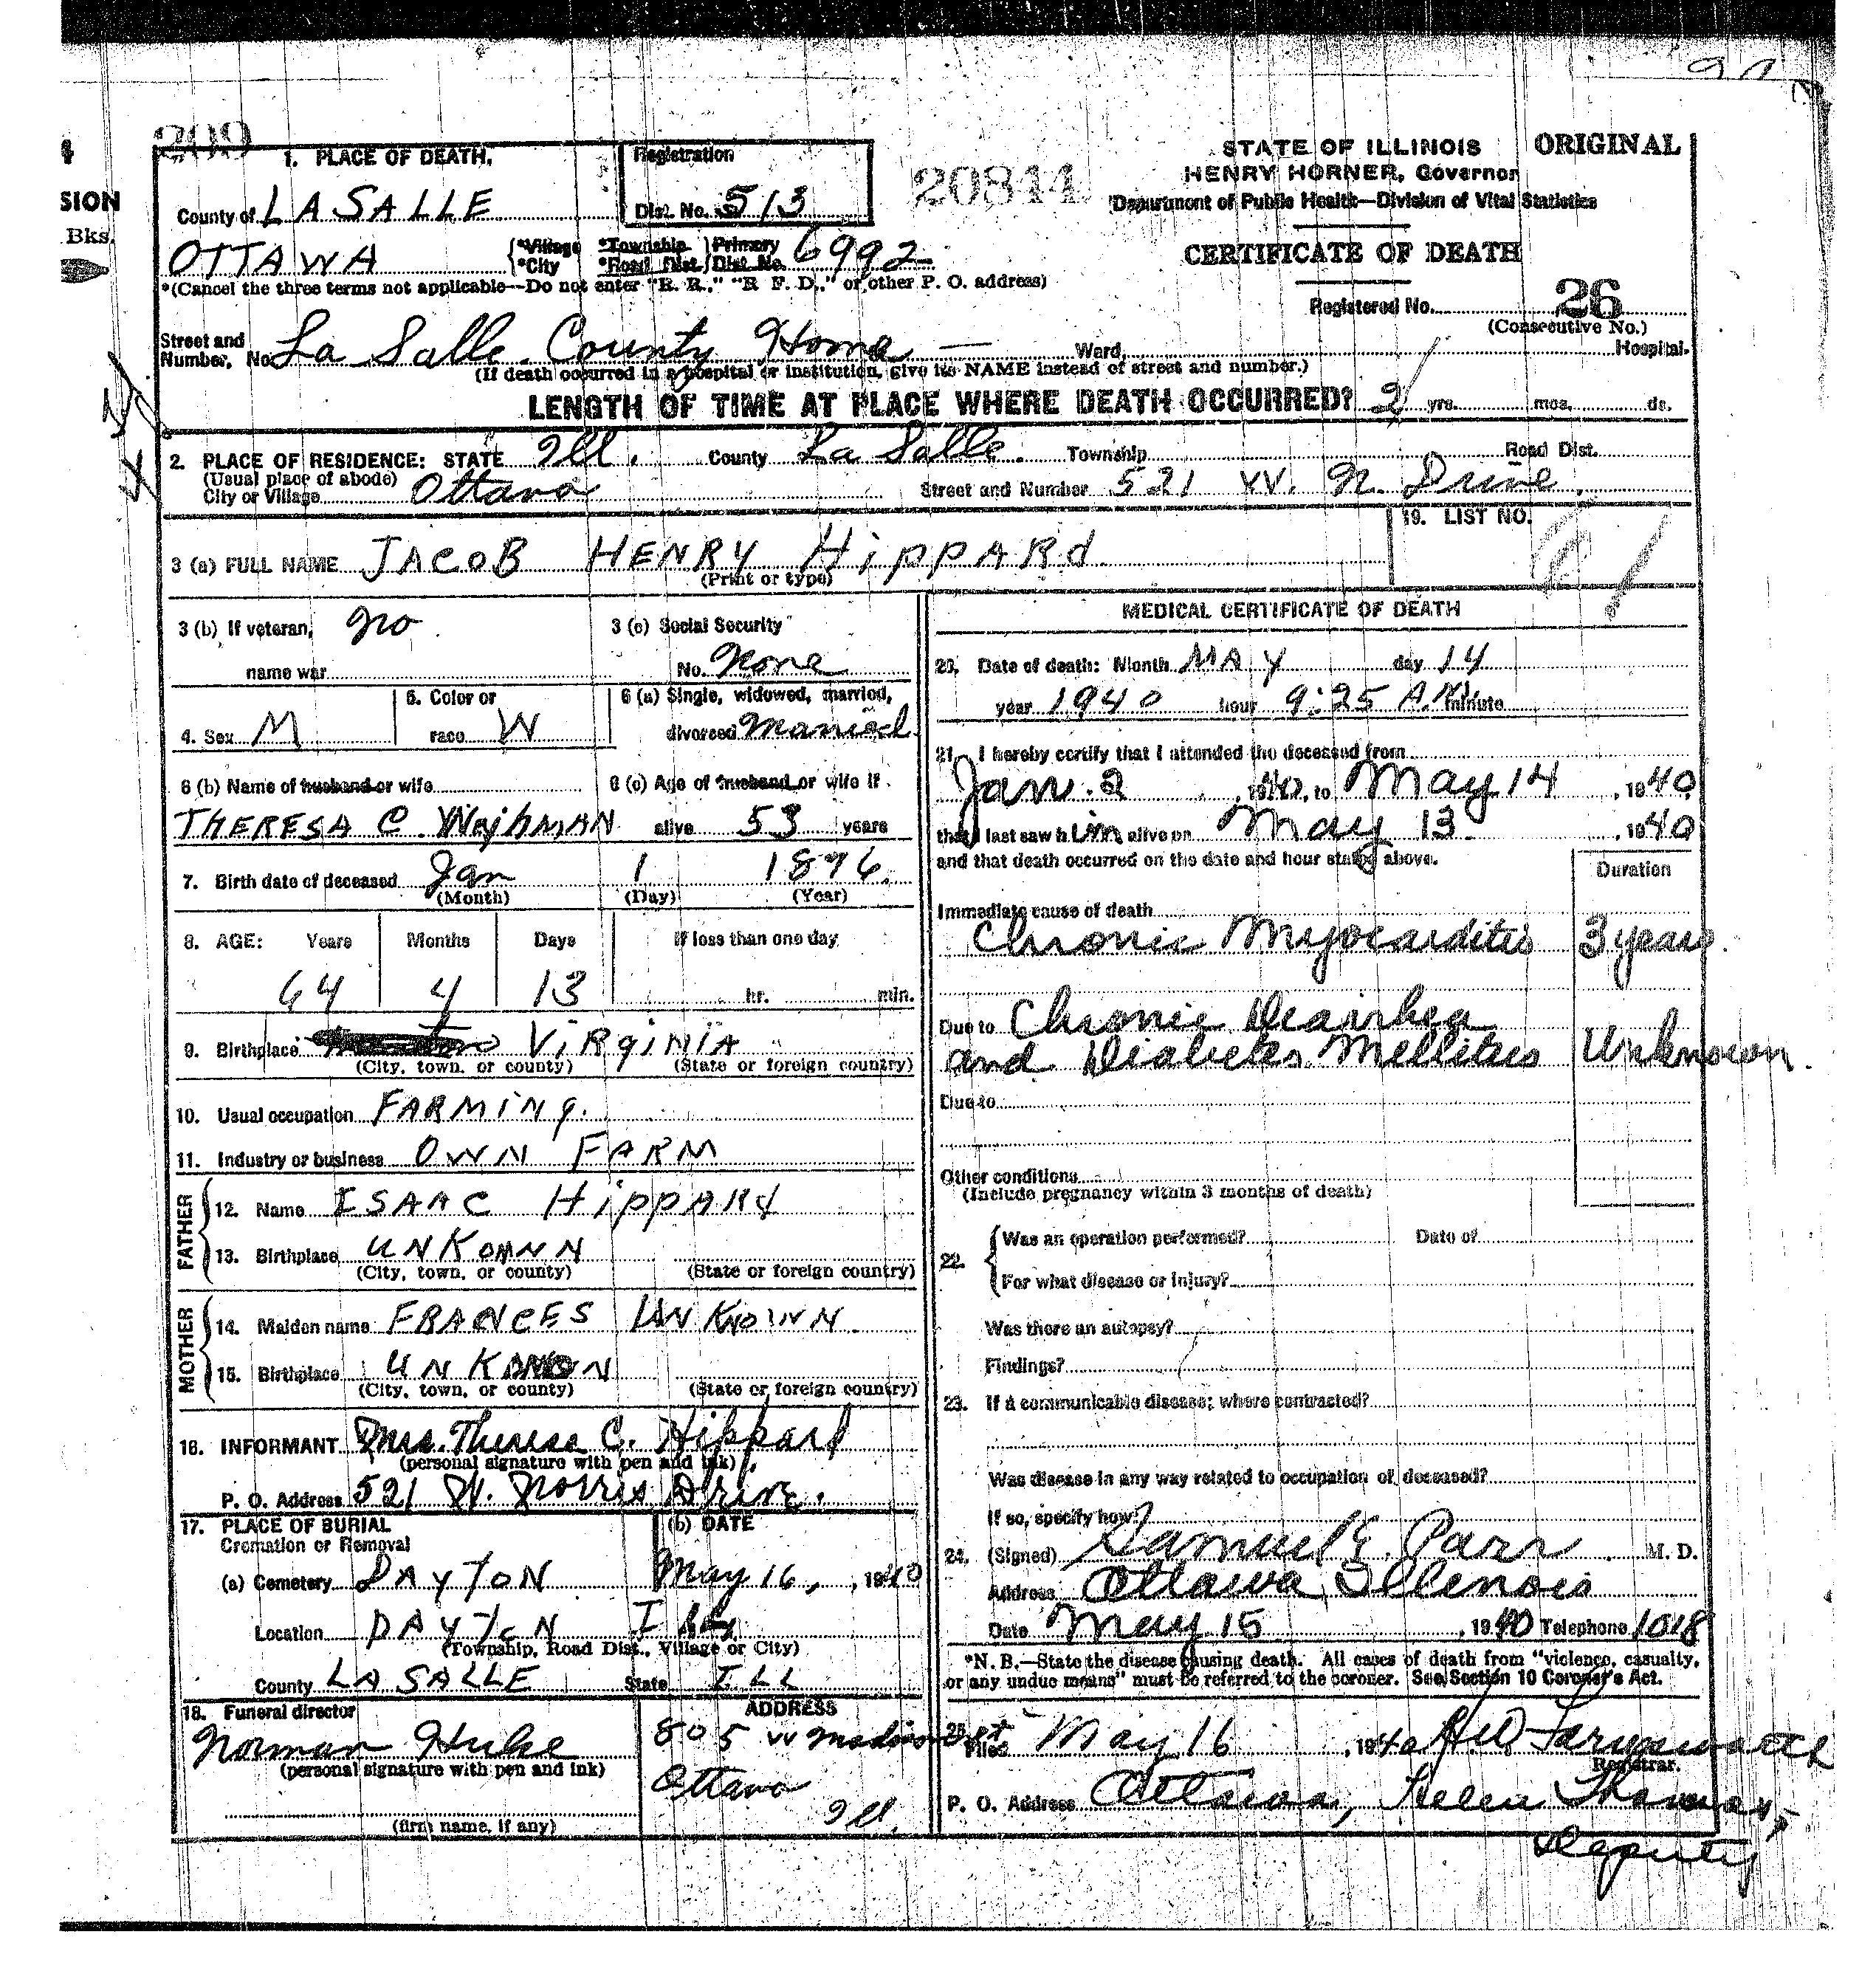 209
1. PLACE OF DEATH.
Registration
Dist. No. 513
20844
STATE OF ILLINOIS
ORIGINAL
HENRY HORNER, Governor
Department of Public Health—Division of Vital Statistics
SION
Bks.
County of LASALLE
OTTAWA {*Village *City *Township *Road Dist.} Primary Dist. No. 6992
*(Cancel the three terms not applicable—Do not enter "R. R.," "R F. D.," or other P. O. address)
CERTIFICATE OF DEATH
Registered No. 26
(Consecutive No.)
Street and Number, No. La Salle County Home — Ward, Hospital.
(If death occurred in a hospital or institution, give its NAME instead of street and number.)
LENGTH OF TIME AT PLACE WHERE DEATH OCCURRED? 2 yrs. mos. ds.
2. PLACE OF RESIDENCE: STATE Ill. County La Salle. Township Road Dist.
(Usual place of abode)
City or Village Ottawa Street and Number 521 W. N. Drive.
19. LIST NO.
3 (a) FULL NAME JACOB HENRY HippARd
(Print or type)
3 (b) If veteran, no
name war
3 (c) Social Security
No. None
4. Sex M
5. Color or race W
6 (a) Single, widowed, married, divorced Married
6 (b) Name of husband or wife
THERESA C.
6 (c) Age of husband or wife if alive 53 years
7. Birth date of deceased Jan 1 1876.
(Month) (Day) (Year)
8. AGE: Years Months Days If less than one day
64 4 13 hr. min.
9. Birthplace ViRginiA
(City, town, or county) (State or foreign country)
10. Usual occupation FARMing.
11. Industry or business OWN FARM
FATHER
12. Name ISAAC HippARd
13. Birthplace UNKOWNN
(City, town, or county) (State or foreign country)
MOTHER
14. Maiden name FRANCES UNKNOWN
15. Birthplace
(City, town, or county) (State or foreign country)
16. INFORMANT Mrs. Theresa C. Hippard
(personal signature with pen and ink)
P. O. Address 521 W. Norris Drive.
17. PLACE OF BURIAL
Cremation or Removal
(b) DATE
(a) Cemetery DAYTON May 16, , 1940
Location DAYTON
(Township, Road Dist., Village or City)
County LA SALLE State ILL
18. Funeral director
Norman Hulse
(personal signature with pen and ink)
(firm name, if any)
ADDRESS
805 W Madison St
Ottawa
Ill.
MEDICAL CERTIFICATE OF DEATH
20. Date of death: Month MAY day 14
year 1940 hour 9:25 A.M. minute
21. I hereby certify that I attended the deceased from
Jan. 2 , 1940, to May 14 , 1940
that I last saw him alive on May 13 , 1940
and that death occurred on the date and hour stated above.
Duration
Immediate cause of death
Chronic Myocarditis 3 years.
Due to Chronic Diarrhea
and Diabetes Mellitus Unknown.
Due to
Other conditions
(Include pregnancy within 3 months of death)
22. {Was an operation performed? Date of
For what disease or injury?
Was there an autopsy?
Findings?
23. If a communicable disease; where contracted?
Was disease in any way related to occupation of deceased?
If so, specify how?
24. (Signed) Samuel E. Parr M. D.
Address Ottawa, Illinois
Date May 15 , 1940 Telephone 1018
*N. B.—State the disease causing death. All cases of death from "violence, casualty,
or any undue means" must be referred to the coroner. See Section 10 Coroner's Act.
25. Filed May 16 , 1940 Farnsworth
Registrar.
P. O. Address Ottawa, Helen Thomas,
Deputy